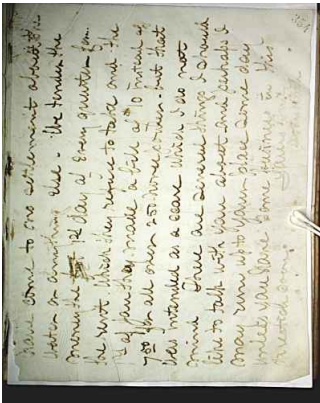 354
have come to no settlement about this
water or anything else. We tender the
money the 12 day of every quarter for
the rent which they refuse to take and the
if office they made a bill at 10 instead of
7.50 for all over 250 inches but that
was intended as a scare which I do not
mind There are several things I would
like to talk with you about and perhaps I
may run up to your place some day
unless you have some business in this
direction soon
Yours